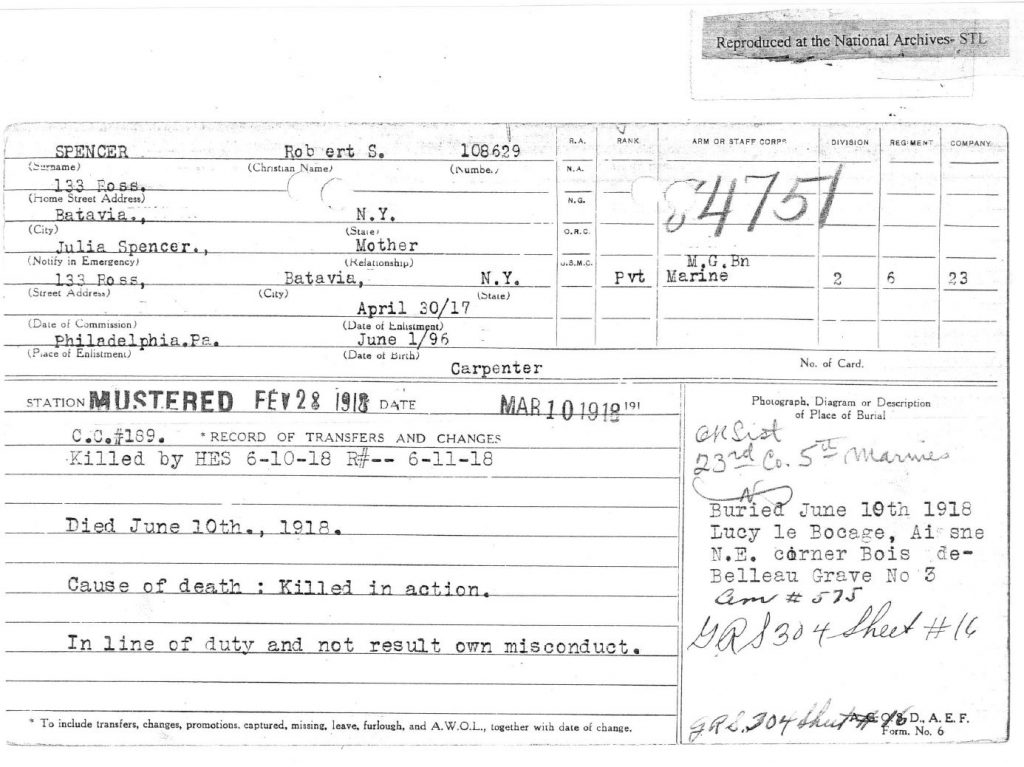 Reproduced at the National Archives- STL
SPENCER Robert S. 108629
(Surname) (Christian Name) (Number)
133 Ross.
(Home Street Address)
Batavia., N.Y.
(City) (State)
Julia Spencer., Mother
(Notify in Emergency) (Relationship)
133 Ross, Batavia, N.Y.
(Street Address) (City) (State)
April 30/17
(Date of Commission) (Date of Enlistment)
Philadelphia.Pa. June 1/96
(Place of Enlistment) (Date of Birth)
Carpenter
R.A. RANK ARM OR STAFF CORPS DIVISION REGIMENT COMPANY
N.A.
N.G.
84751
O.R.C.
U.S.M.C. Pvt M.G.Bn
Marine 2 6 23
No. of Card.
STATION MUSTERED FEV 28 1918 DATE MAR 10 1918 191
C.C.#189. * RECORD OF TRANSFERS AND CHANGES
Killed by HES 6-10-18 R#-- 6-11-18
Died June 10th., 1918.
Cause of death : Killed in action.
In line of duty and not result own misconduct.
* To include transfers, changes, promotions, captured, missing, leave, furlough, and A.W.O.L., together with date of change.
Photograph, Diagram or Description
of Place of Burial
23rd Co. 5th Marines
Buried June 10th 1918
Lucy le Bocage, Aisne
N.E. corner Bois de-
Belleau Grave No 3
Cem # 575
GRS 304 Sheet #16
G.R.S. 304 Sheet # 16
D., A. E. F.
Form. No. 6